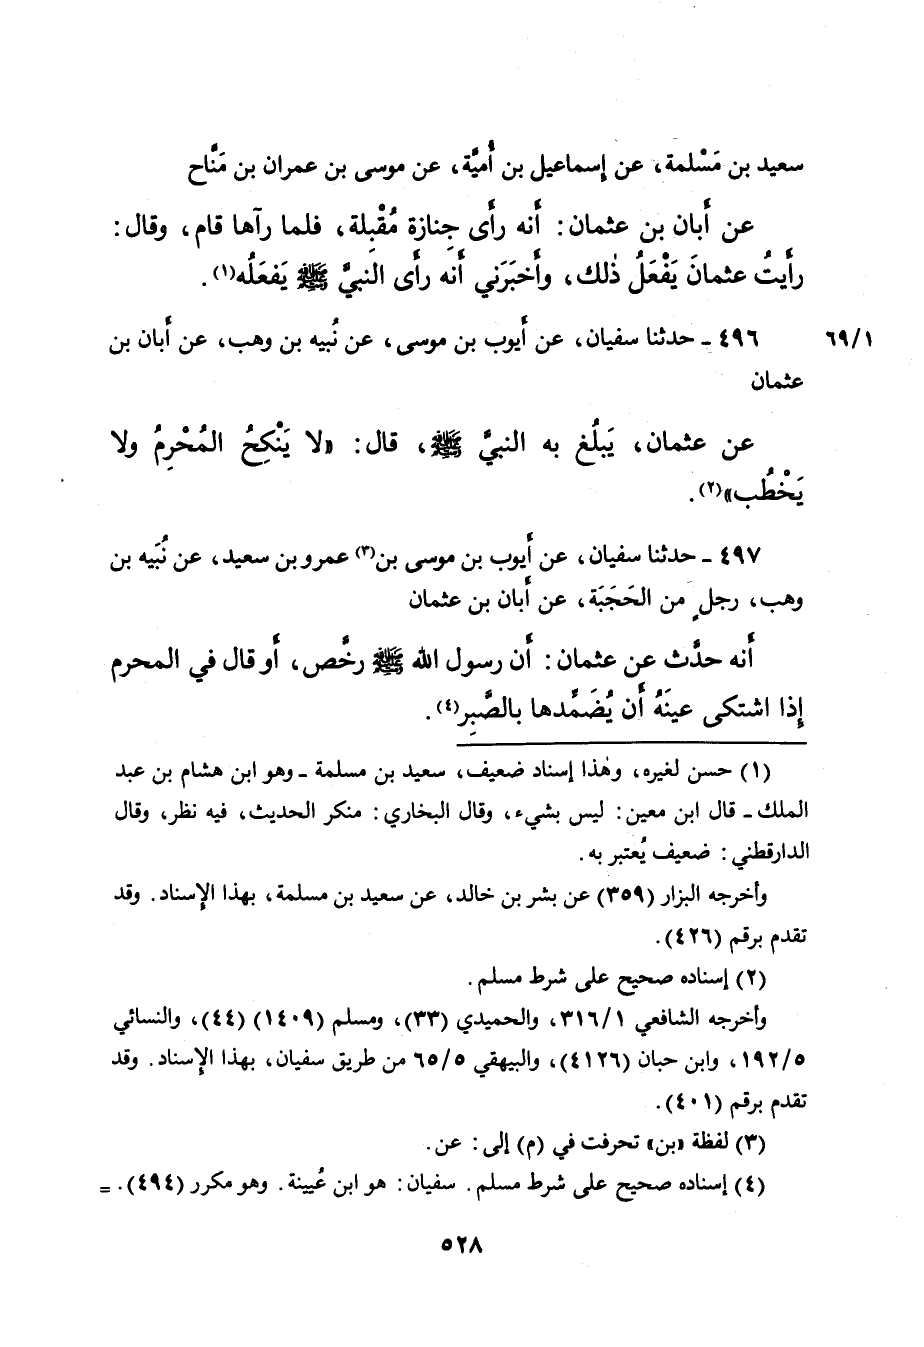 سعيد بن مَسْلمة، عن إسماعيل بن أُميَّة، عن موسى بن عمران بن مَنَّاح
عن أَبان بن عثمان: أَنه رأَى جِنازة مُقْبِلة، فلما رآها قام، وقال:
رأَيتُ عثمانَ يَفْعَلُ ذٰلك، وأَخبَرَني أَنه رأَى النبيَّ ﷺ يَفعَلُه(١).
٤٩٦ ـ حدثنا سفيان، عن أَيوب بن موسى، عن نُبيه بن وهب، عن أَبان بن ٦٩/١
عثمان
عن عثمان، يَبلُغ به النبيَّ ﷺ، قال: «لا يَنْكِحُ المُحْرِمُ ولا
يَخْطُب»(٢).
٤٩٧ ـ حدثنا سفيان، عن أَيوب بن موسى بن(٣) عمرو بن سعيد، عن نُبَيه بن
وهب، رجلٍ من الحَجَبَة، عن أَبان بن عثمان
أَنه حدَّث عن عثمان: أَن رسول الله ﷺ رخَّص، أَو قال في المحرم
إِذا اشتكى عينَهُ أَن يُضَمِّدها بالصَّبِر(٤).
(١) حسن لغيره، وهٰذا إسناد ضعيف، سعيد بن مسلمة ـ وهو ابن هشام بن عبد
الملك ـ قال ابن معين: ليس بشيء، وقال البخاري: منكر الحديث، فيه نظر، وقال
الدارقطني: ضعيف يُعتبر به.
وأخرجه البزار (٣٥٩) عن بشر بن خالد، عن سعيد بن مسلمة، بهذا الإسناد. وقد
تقدم برقم (٤٢٦).
(٢) إسناده صحيح على شرط مسلم.
وأخرجه الشافعي ٣١٦/١، والحميدي (٣٣)، ومسلم (١٤٠٩) (٤٤)، والنسائي
١٩٢/٥، وابن حبان (٤١٢٦)، والبيهقي ٦٥/٥ من طريق سفيان، بهذا الإسناد. وقد
تقدم برقم (٤٠١).
(٣) لفظة «بن» تحرفت في (م) إلى: عن.
(٤) إسناده صحيح على شرط مسلم. سفيان: هو ابن عُيينة. وهو مكرر (٤٩٤). =
٥٢٨